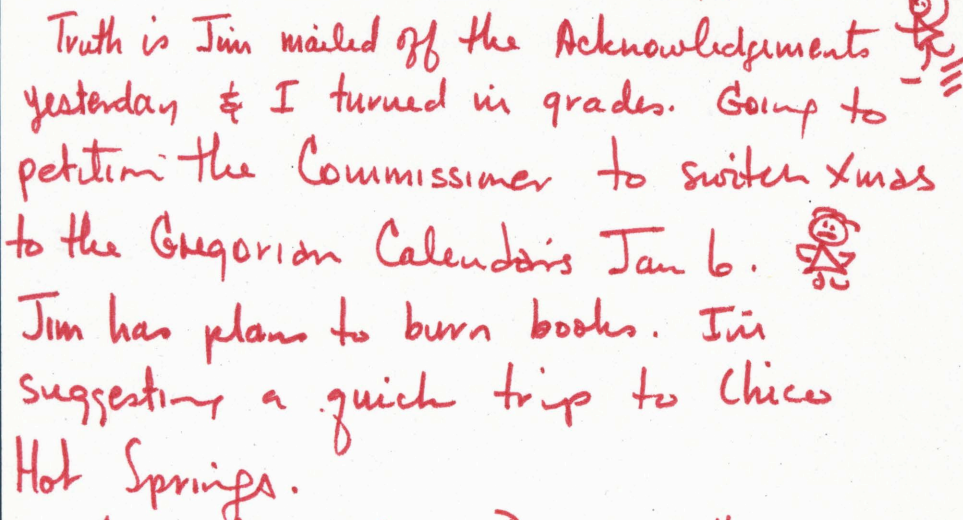 Truth is Jim mailed off the Acknowledgements
yesterday & I turned in grades. Going to
petition the Commissioner to switch Xmas
to the Gregorian Calendar's Jan 6.
Jim has plans to burn books. I'm
suggesting a quick trip to Chico
Hot Springs.